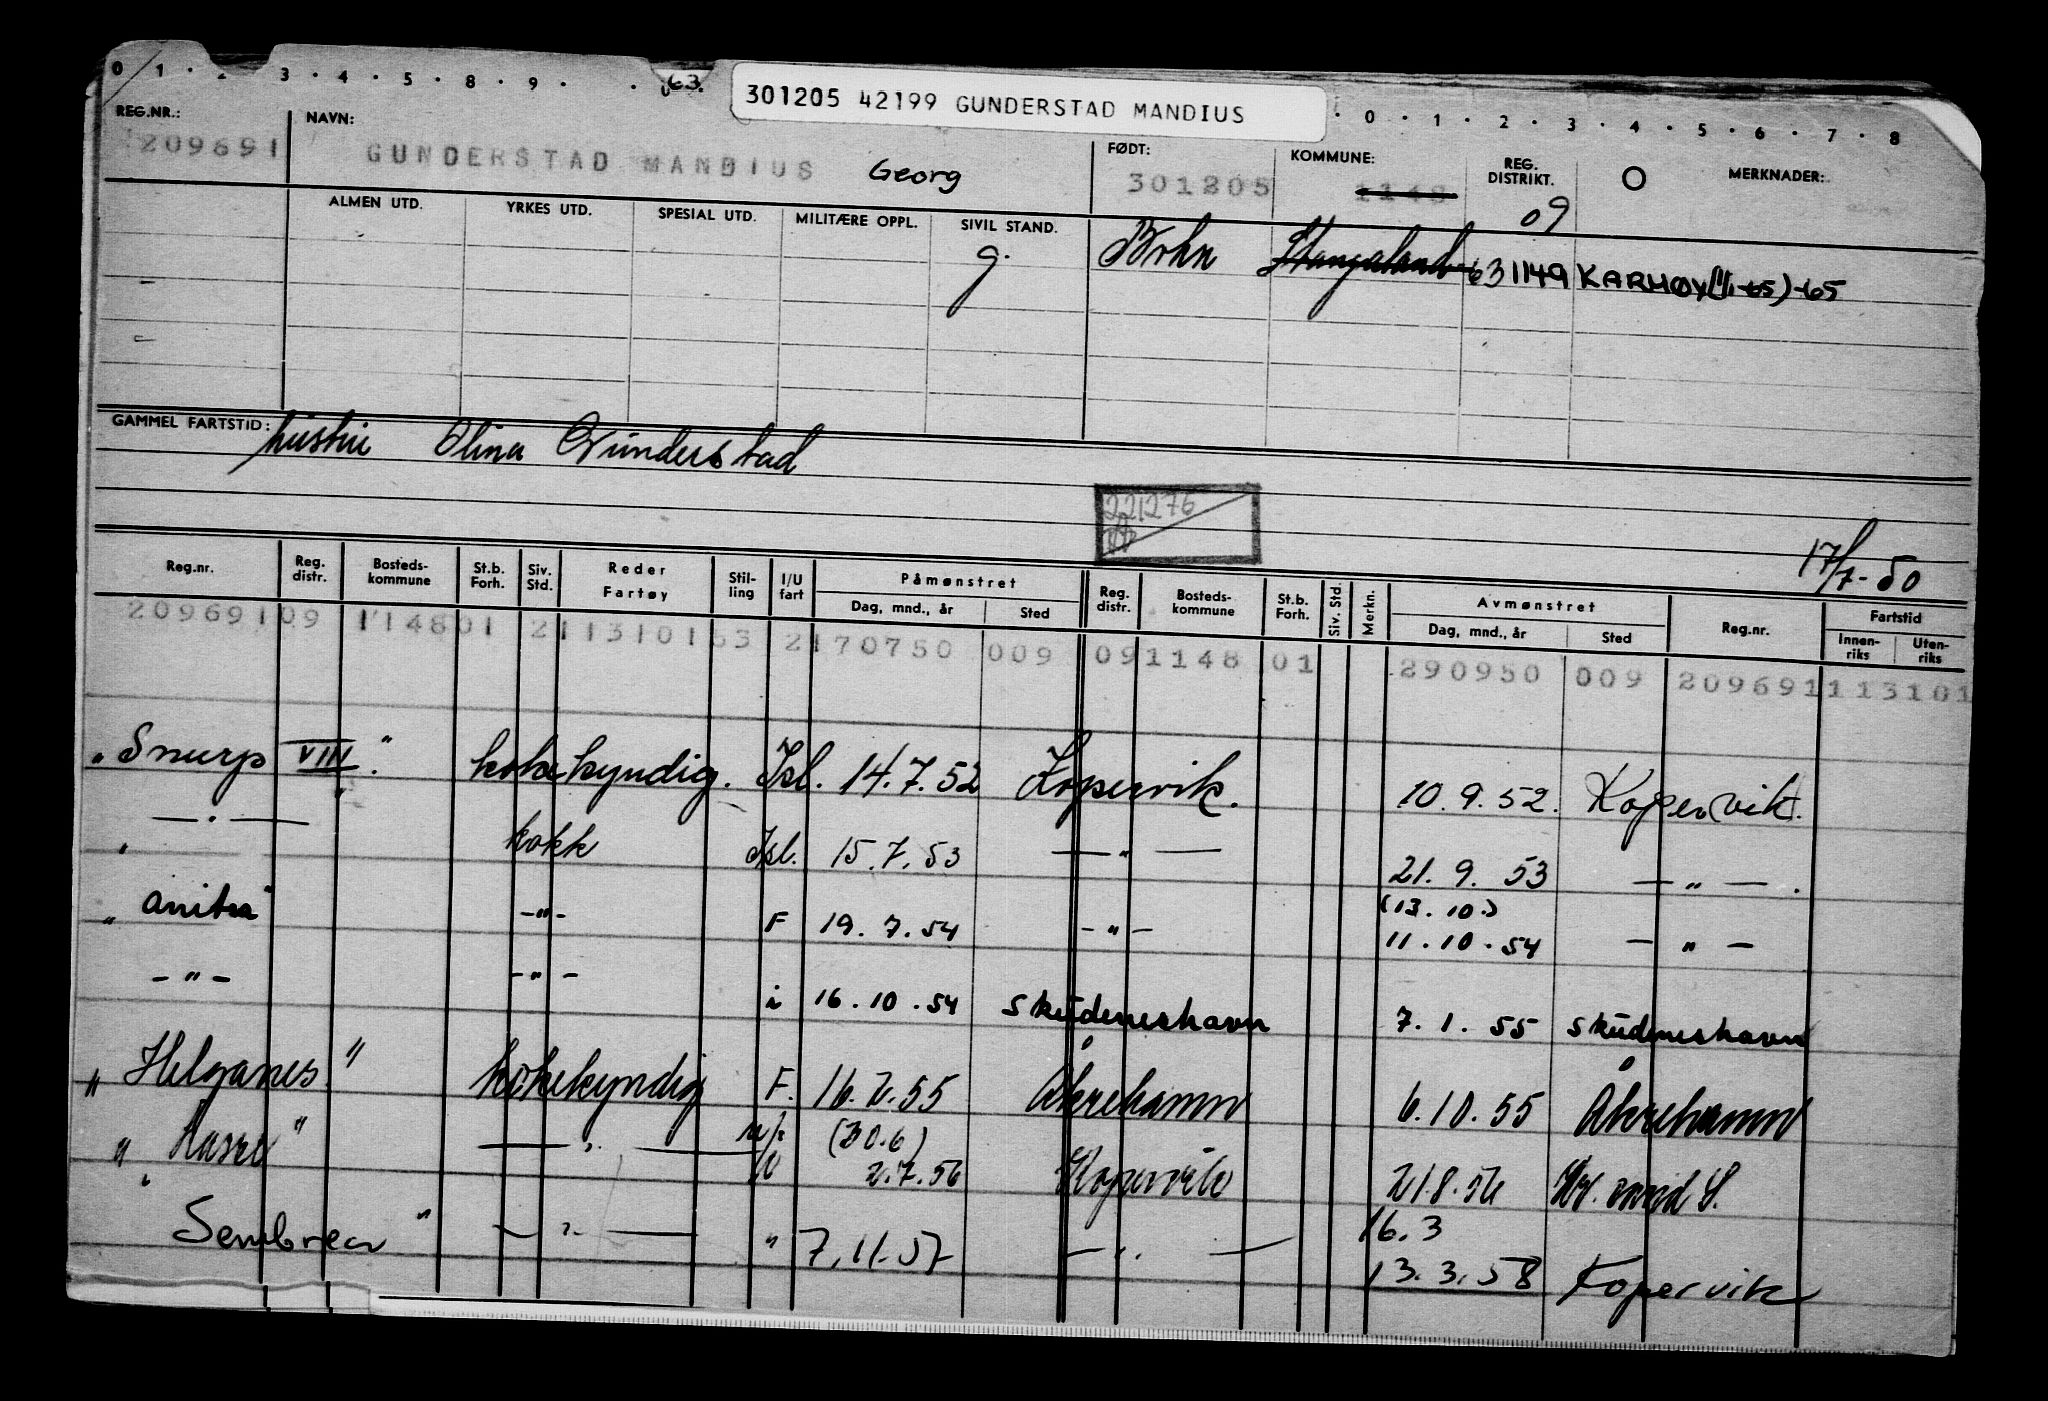 0 1 . 2 . 3 . 4 . 5 . 8 . 9 . . . 63. . 0 . 1 . 2 . 3 . 4 . 5 . 6 . 7 . 8
301205 42199 GUNDERSTAD MANDIUS
REG.NR.: NAVN: FØDT: KOMMUNE: REG. DISTRIKT. O MERKNADER:
209691 GUNDERSTAD MANDIUS Georg 301205 1148 09
ALMEN UTD. YRKES UTD. SPESIAL UTD. MILITÆRE OPPL. SIVIL STAND.
g. Bokn Stangaland 63 1149 KARMØY (1/1-65) -65
GAMMEL FARTSTID: hustru Olina Gunderstad
221276
17/7-50
Reg.nr. Reg. distr. Bosteds-kommune St.b. Forh. Siv. Std. Reder Fartøy Stil-ling I/U fart Påmønstret Reg. distr. Bosteds-kommune St.b. Forh. Siv. Std. Merkn. Avmønstret Reg.nr. Fartstid
Dag, mnd., år Sted Dag, mnd., år Sted Innen-riks Uten-riks
209691 09 1148 01 2 113101 53 2 170750 009 09 1148 01 290950 009 209691 113101
"Snurp VIII" kokekyndig. Isl. 14.7.52 Kopervik. 10.9.52. Kopervik.
— " — kokk Isl. 15.7.53 — " — 21.9.53 — " — .
(13.10.)
"Anitra" - " - F 19.7.54 - " - 11.10.54 — " —
- " - - " - i 16.10.54 Skudeneshavn 7.1.55 Skudeneshavn
"Helganes" kokekyndig F. 16.7.55 Åkrehamn 6.10.55 Åkrehamn
(30.6)
— " — 2.7.56 Kopervik 21.8.56
16.3
— " — " 7.11.57 — " — 13.3.58 Kopervik